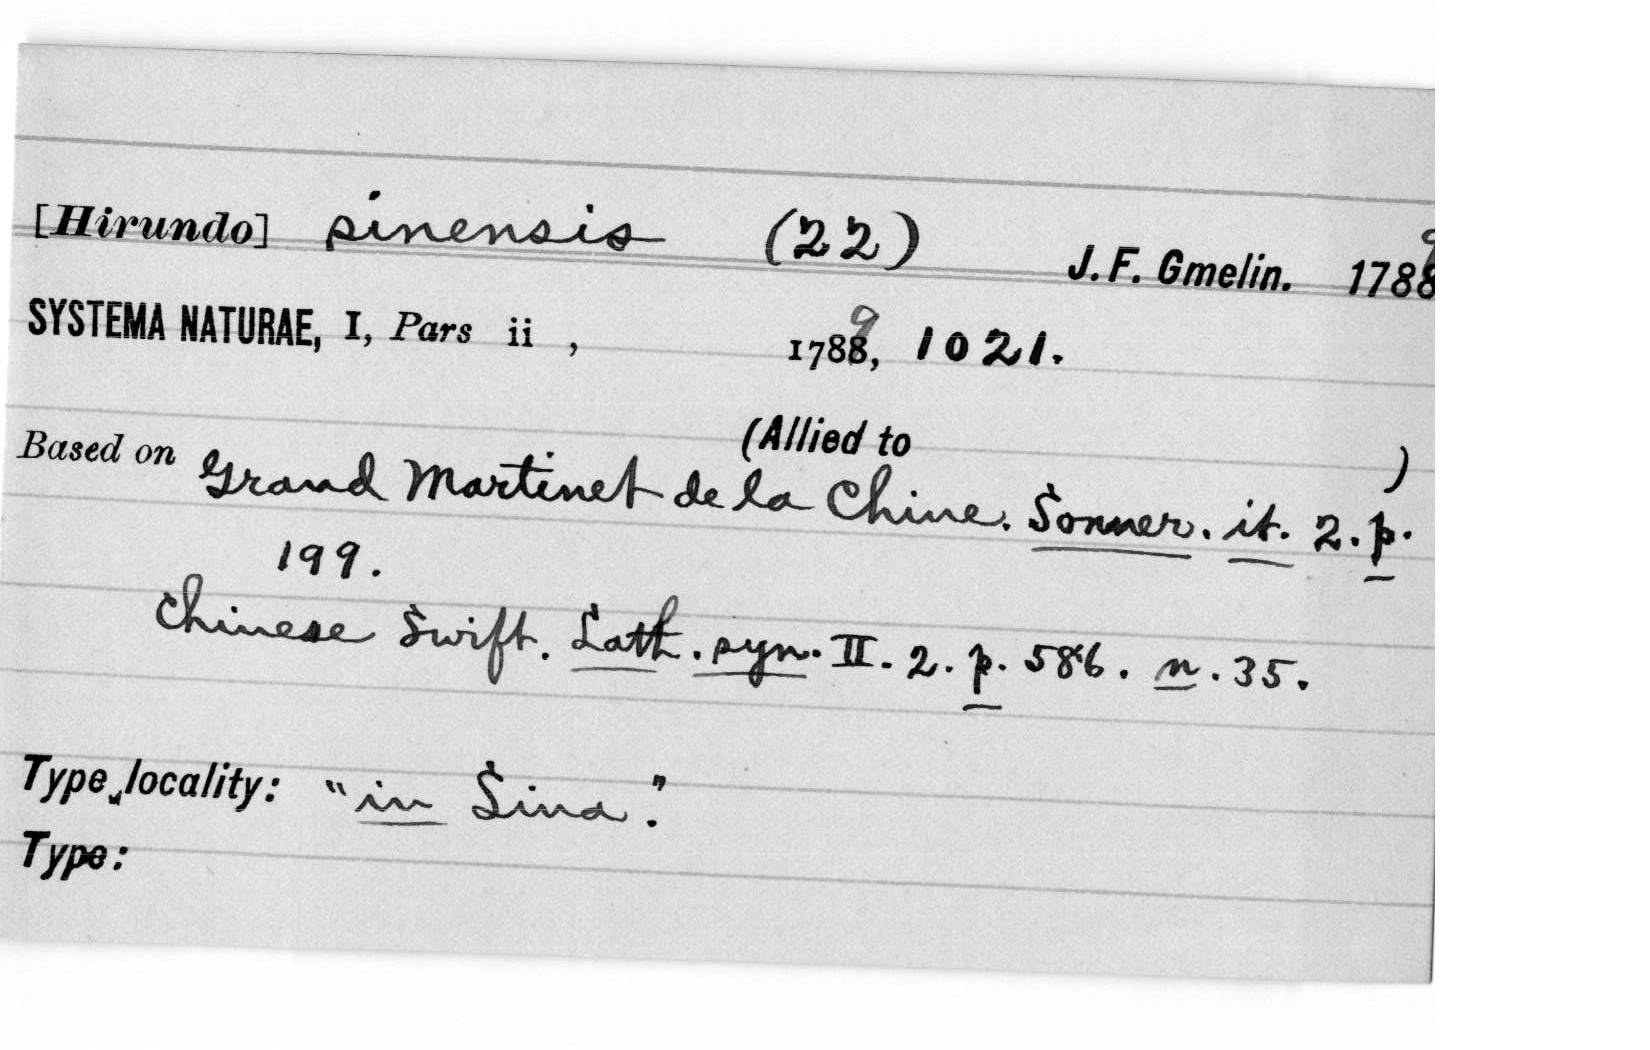 [Hirundo] sinensis (22) J. F. Gmelin. 1789
SYSTEMA NATURAE, I, Pars ii , 1789, 1021.
(Allied to )
Based on Grand Martinet de la Chine. Sonner. it. 2. p.
199.
Chinese Swift. Lath. syn. II. 2. p. 586. n. 35.
Type locality: "in Sina."
Type: